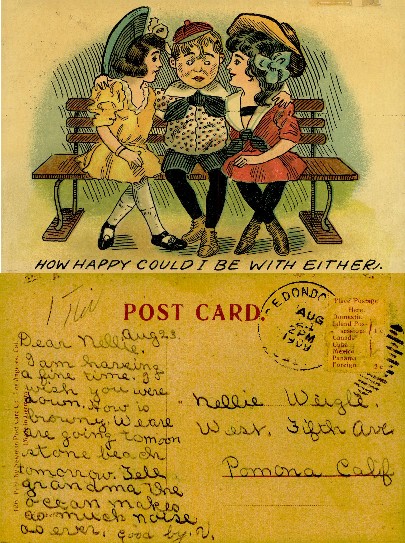 HOW HAPPY COULD I BE WITH EITHER.
POST CARD.
Aug 23.
Dear Nellie.
I am having
a fine time. I
wish you were
down. How is
browny. We are
are going to moon
stone beach
tomorrow. Tell
grandma the
ocean makes
as much noise
as ever. good by. V.
REDONDO
AUG
2 PM
1909
Place Postage
Here
Domestic
Island Pos-
sessions
Canada
Cuba
Mexico
Panama
Foreign
Nellie Weigle.
West. Fifth Ave
Pomona Calif